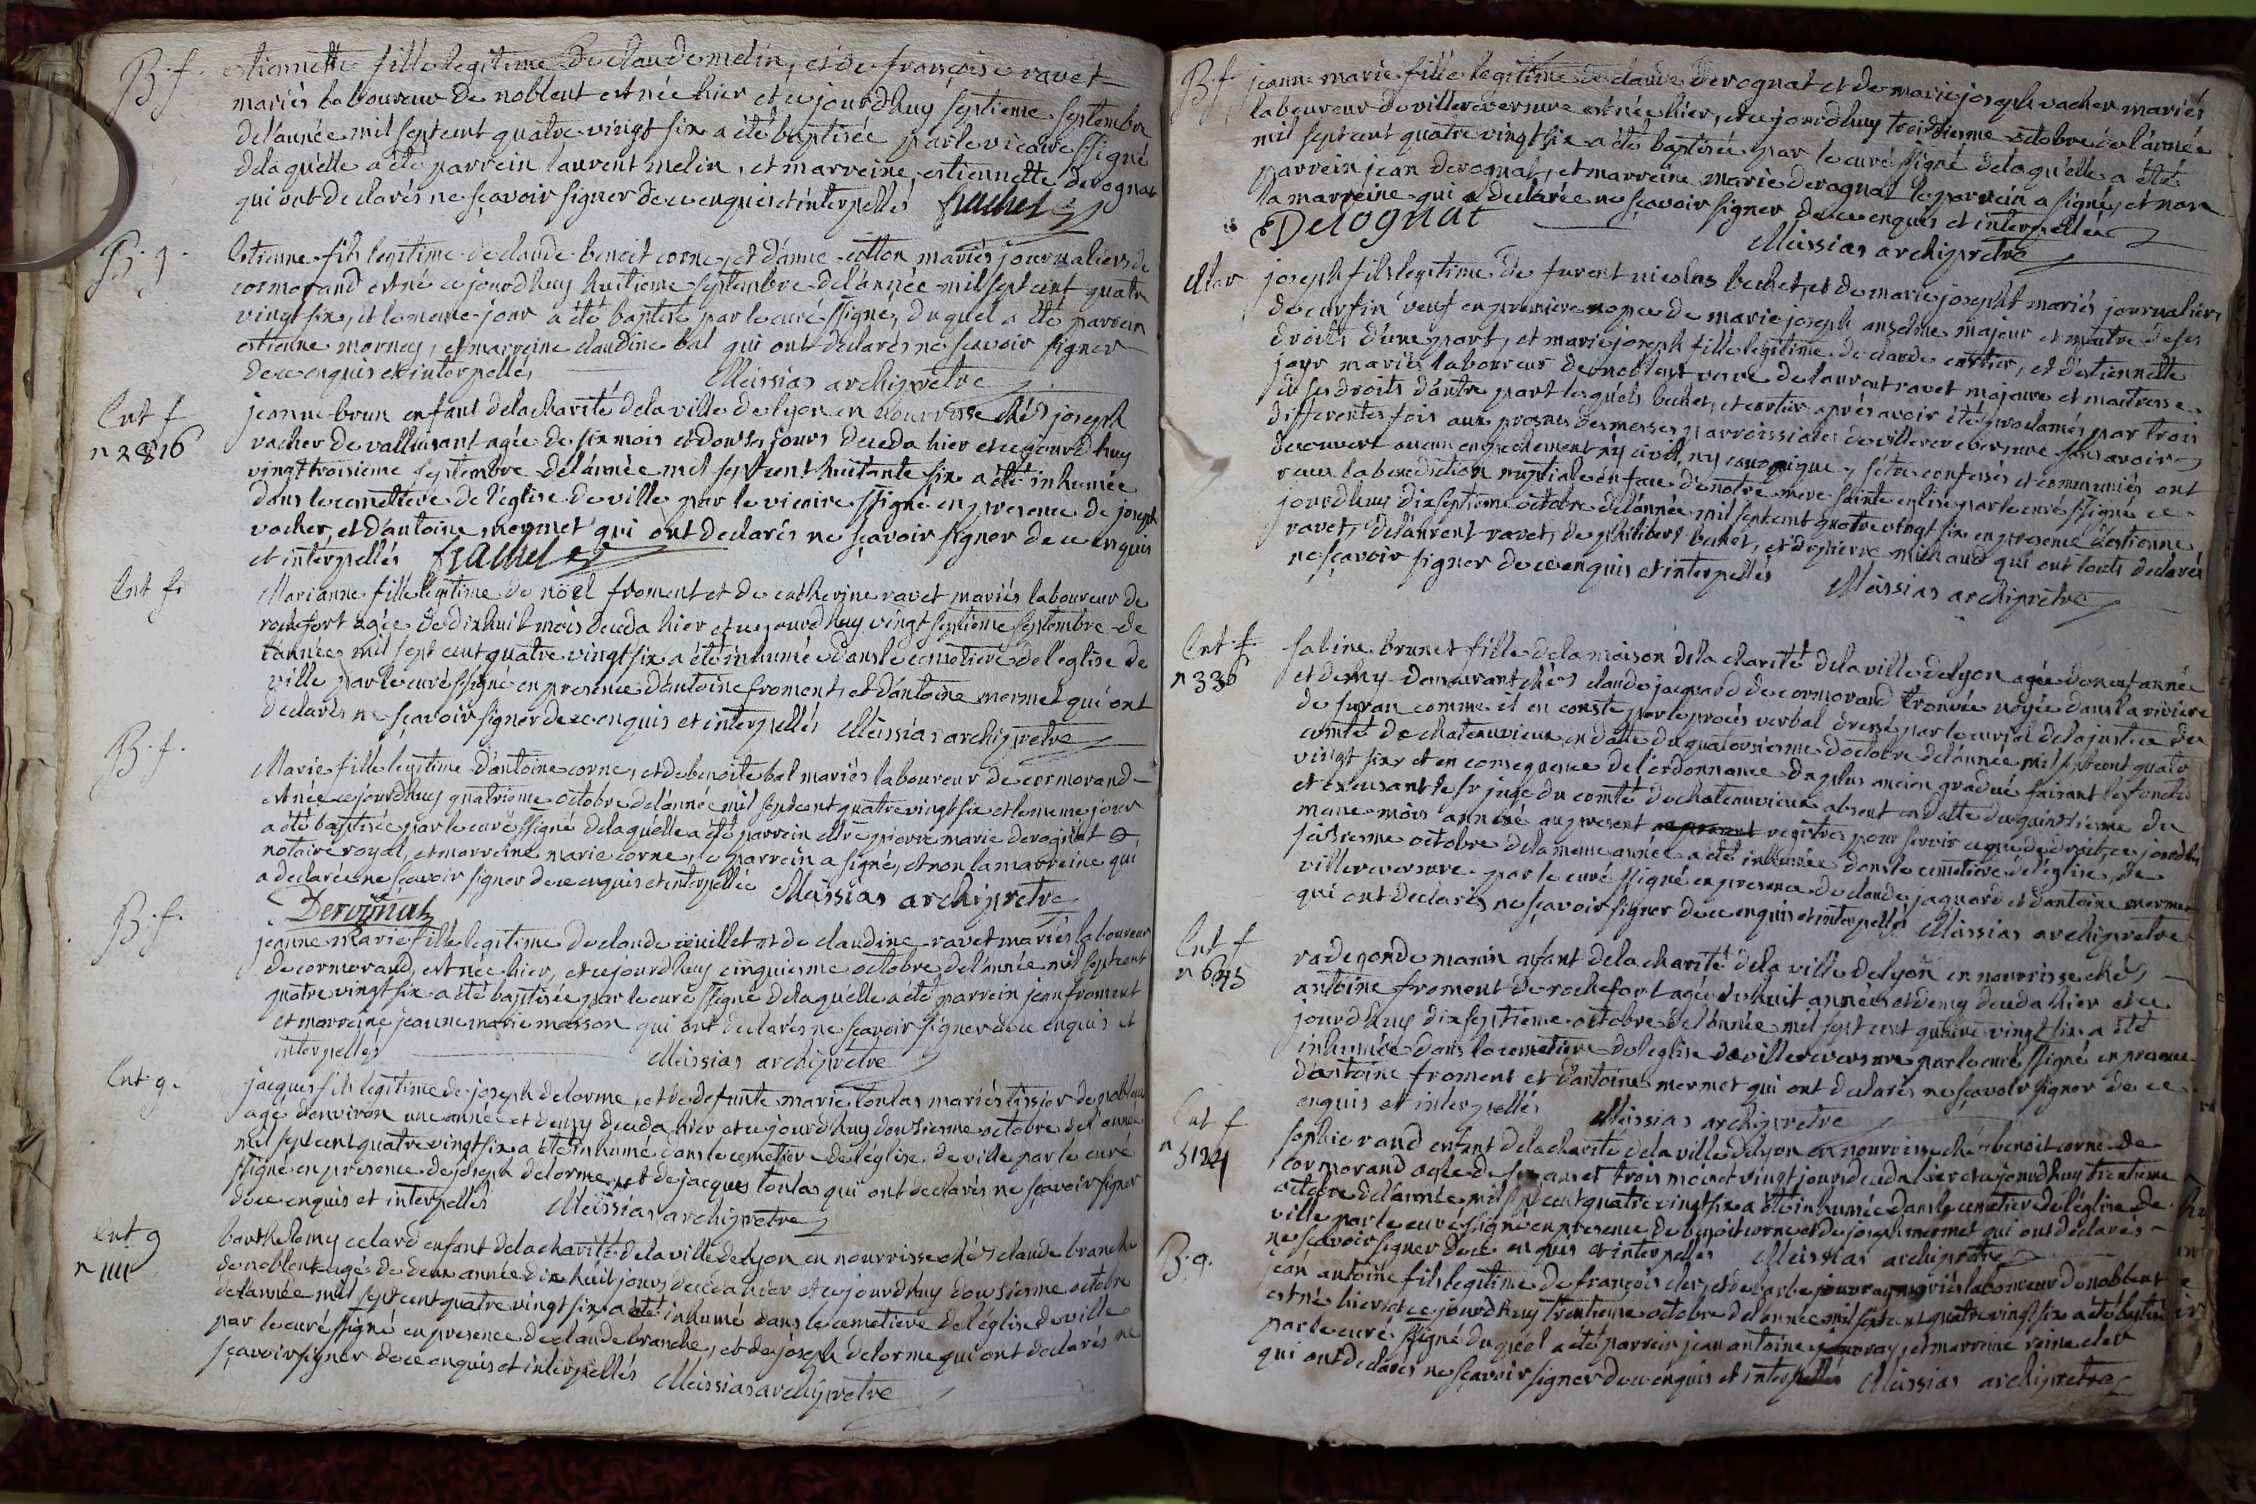 B. f. estiennette fille legitime de claude melin, et de françoise ravet
mariés laboureur de noblent est née hier et ce jourdhuy septieme septembre
de l'année mil sept cent quatre vingt six a été baptisée par le vicaire ssigné
de laquelle a été parrein laurent melin, et marreine estiennette derognat
qui ont declarés ne sçavoir signer de ce enquis et interpellés frachet
B. g. Etienne fils legitime de claude benoit corne, et d'anne cotton mariés journaliers de
cormorand est né ce jourdhuy huitieme septembre de l'année mil sept cent quatre
vingt six, et le meme jour a été baptisé par le curé ssigné, duquel a été parrein
estienne mornay, et marreine claudine bal qui ont declarés ne sçavoir signer
de ce enquis et interpellés Messias archiprêtre
Ent f jeanne brun enfant de la charité de la ville de lyon en nourrisse chés joseph
n 2816 vacher de valluisant agée de six mois et douze jours deceda hier et ce jourdhuy
vingt troisieme septembre de l'année mil sept cent huitante six a été inhumée
dans le cemettiere de l'église de ville par le vicaire ssigné en presence de joseph
vacher, et d'antoine mermet qui ont declarés ne sçavoir signer de ce enquis
et interpellés frachet
Ent f Marianne fille legitime de nöel froment et de catherine ravet mariés laboureur de
rochefort agée de dix huit mois deceda hier et ce jourdhuy vingt septieme septembre de
l'année mil sept cent quatre vingt six a été inhumée dans le cemetiere de l'eglise de
ville par le curé ssigné en presence d'antoine froment, et d'antoine mermet qui ont
declarés ne sçavoir signer de ce enquis et interpellés Messias archiprêtre
B. f. Marie fille legitime d'antoine corne, et de benoite bal mariés laboureur de cormorand
est née ce jourdhuy quatrieme octobre de l'année mil sept cent quatre vingt six et le meme jour
a été baptisée par le curé ssigné de laquelle a été parrein Mtre pierre marie derognat
notaire royal, et marreine marie corne, le parrein a signé, et non la marreine qui
a declarée ne sçavoir signer de ce enquis et interpellée Messias archiprêtre
Derognat
B. f. jeanne Marie fille legitime de claude et de claudine ravet mariés laboureur
de cormorand, est née hier, et ce jourdhuy cinquieme octobre de l'année mil sept cent
quatre vingt six a été baptisée par le curé ssigné de laquelle a été parrein jean froment
et marreine jeanne marie masson qui ont declarés ne sçavoir signer de ce enquis et
interpellés Messias archiprêtre
Ent g. jacques fils legitime de joseph delorme, et de defunte marie toulas mariés tissier de noblent
agé d'environ une année et demy deceda hier et ce jourdhuy dousieme octobre de l'année
mil sept cent quatre vingt six a été inhumé dans le cemetiere de l'église de ville par le curé
ssigné en présence de joseph delorme, et de jacques toulas qui ont declarés ne sçavoir signer
de ce enquis et interpellés Messias archiprêtre
Ent. g barthelemy celard enfant de la charité de la ville de lyon en nourrisse chés claude branche
n 1111 de noblent agé de deux année dix huit jours deceda hier et ce jourdhuy dousieme octobre
de l'année mil sept cent quatre vingt six a été inhumé dans le cemetiere de l'église de ville
par le curé ssigné en presence de claude branche, et de joseph delorme qui ont declarés ne
sçavoir signer de ce enquis et interpellés Messias archiprêtre
B. f. jeanne marie fille legitime de claude derognat et de marie joseph vacher mariés
laboureur de villereversure est née hier, et ce jourdhuy treizieme octobre de l'année
mil sept cent quatre vingt six a été baptisée par le curé ssigné de laquelle a été
parrein jean derognat, et marreine marie derognat le parrein a signé, et non
la marreine qui a declarée ne sçavoir signer de ce enquis et interpellée
Derognat Messias archiprêtre
Mar joseph fils legitime de furent nicolas bechet, et de marie joseph mariés journaliers
de curfin veuf en premiere nopce de marie joseph anselme majeur et maitre de ses
droits d'une part, et marie joseph fille legitime de claude cottier, et d'estiennette
jayr mariés laboureur de noblent veuve de laurent ravet majeure et maitresse
de ses droits d'autre part lesquels bechet, et cottier après avoir été proclamés par trois
differentes fois aux prosnes des messes parroissiales de villereversure sans avoir
decouvert aucun empechement ny civil, ny canonique, s'etre confessés et communiés ont
receu la benediction nuptiale en face de notre mere sainte eglise par le curé ssigné ce
jourdhuy dix septieme octobre de l'année mil sept cent quatre vingt six en presence d'estienne
ravet, de laurent ravet, de philibert bechet, et de pierre michaud qui ont touts declarés
ne sçavoir signer de ce enquis et interpellés Messias archiprêtre
Ent. f. sabine brunet fille de la maison de la charité de la ville de lyon agée de neuf année
n 336 et demy demeurant chés claude jacquard de cormorand trouvée noyée dans la riviere
de suran comme il en conste par le procès verbal dressé par le curial de la justice du
comté de chateauvieux en datte du quatorsieme d'octobre de l'année mil sept cent quatre
vingt six et en consequence de l'ordonnance du plus ancien gradué faisant les fonctions
et excusant le sr juge du comté de chateauvieux absent en datte du quinsieme du
meme mois annexé au present registre pour servir ce que de droit, ce jourdhuy
seisieme octobre de la meme année a été inhumée dans le cemetiere de l'église de
villereversure par le curé ssigné en presence de claude jaquard et d'antoine mermet
qui ont declarés ne sçavoir signer de ce enquis et interpellés Messias archiprêtre
Ent f radegonde manin enfant de la charité de la ville de lyon en nourrisse chés
n 6645 antoine froment de rochefort agée de huit années et demy deceda hier et ce
jourdhuy dix septieme octobre de l'année mil sept cent quatre vingt six a été
inhumée dans le cemetiere de l'eglise de villereversure par le curé ssigné en presence
d'antoine froment et d'antoine mermet qui ont declarés ne sçavoir signer de ce
enquis et interpellés Messias archiprêtre
Ent f sophie rand enfant de la charité de la ville de lyon en nourrisse chés benoit corne de
n 5124 cormorand agée de ans et trois mois et vingt jours deceda hier et ce jourdhuy trentieme
octobre de l'année mil sept cent quatre vingt six a été inhumée dans le cemetiere de l'église de
ville par le curé ssigné en presence de benoit corne et de joseph mermet qui ont declarés
ne sçavoir signer de ce enquis et interpellés Messias archiprêtre
B. g. jean antoine fils legitime de françois cler, et de barbe jouvray mariés laboureur de noblent
est né hier et ce jourdhuy trentieme octobre de l'année mil sept cent quatre vingt six a été baptisé
par le curé ssigné duquel a été parrein jean antoine jouvray, et marreine reine cler
qui ont declarés ne sçavoir signer de ce enquis et interpellés Messias archiprêtre